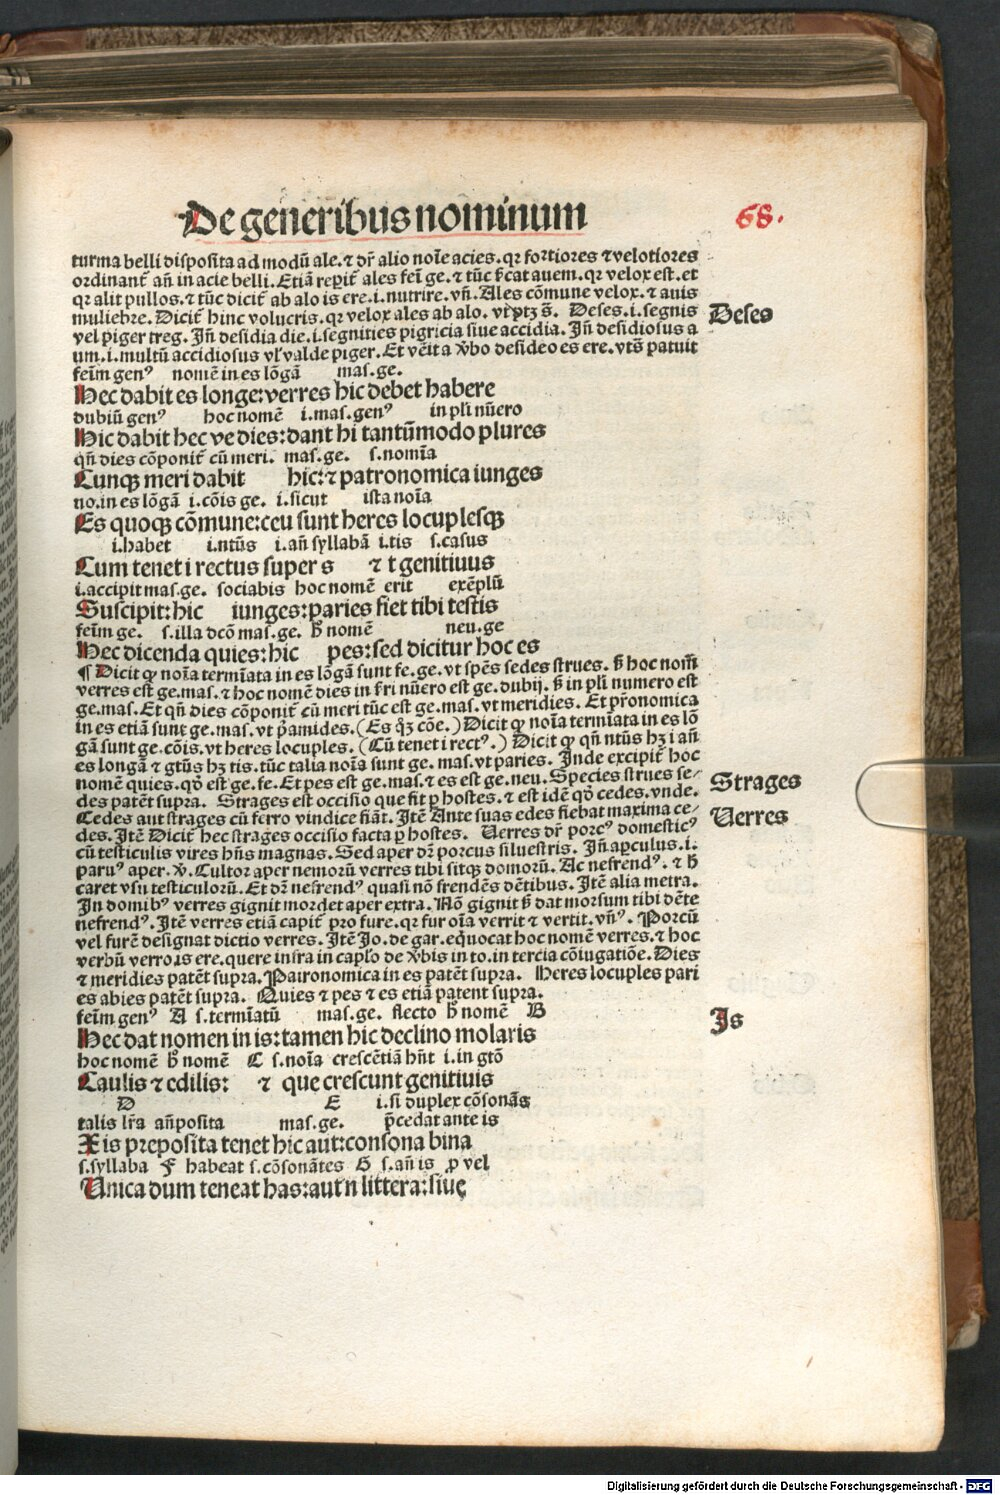 De generibus nominum
68.
turma belli disposita ad modū ale. ⁊ dr̄ alio noīe acies. qꝛ fortiores ⁊ velotiores
ordinant᷑ añ in acie belli. Etiā reꝑit᷑ ales feī ge. ⁊ tūc ſ̄cat auem. qꝛ velox est. et
qꝛ alit pullos. ⁊ tūc dicit᷑ ab alo is ere .i. nutrire. vñ. Ales cōmune velox. ⁊ auis
muliebre. Dicit᷑ hinc volucris. qꝛ velox ales ab alo. Deses .i. segnis
Deses
vel piger treg. Iñ desidia die .i. segnities pigricia siue accidia. Iñ desidiosus a
um .i. multū accidiosus vl̓ valde piger. Et vēit a v̓bo desideo es ere. vts̄ patuit
feīm genꝰ nomē in es lōgā mas. ge.
Hec dabit es longe: verres hic debet habere
dubiū genꝰ hoc nomē .i. mas. genꝰ in pl̓i nūero
Hic dabit hec ve dies: dant hi tantūmodo plures
qñ dies cōponit᷑ cū meri. mas. ge. s. nomīa
Cunqꝫ meri dabit hic: ⁊ patronomica iunges
no. in es lōgā .i. cōis ge. .i. sicut ista noīa
Es quoqꝫ cōmune: ceu sunt heres locuplesqꝫ
.i. habet .i. ntūs .i. añ syllabā .i. tis s. casus
Cum tenet i rectus super s ⁊ t genitiuus
.i. accipit mas. ge. sociabis hoc nomē erit exēplū
Suscipit: hic iunges: paries fiet tibi testis
feīm ge. s. illa dcō mas. ge. ẜ nomē neu. ge
Hec dicenda quies: hic pes: sed dicitur hoc es
¶ Dicit ꝙ noīa termīata in es lōgā sunt fe. ge. vt spēs sedes strues. ẜ hoc nom̄
verres est ge. mas. ⁊ hoc nomē dies in ſ̄ri nūero est ge. dubij. ẜ in pl̓i numero est
ge. mas. Et qñ dies cōponit᷑ cū meri tūc est ge. mas. vt meridies. Et pr̓onomica
in es etiā sunt ge. mas. vt pͥamides. (Es qͦꝫ cōe.) Dicit ꝙ noīa termīata in es lō
gā sunt ge. cōis. vt heres locuples. (Cū tenet i rectꝰ.) Dicit ꝙ qñ ntūs hꝫ i añ
es longā ⁊ gtūs hꝫ tis. tūc talia noīa sunt ge. mas. vt paries. Inde excipit᷑ hoc
nomē quies. qd̓ est ge. fe. Et pes est ge. mas. ⁊ es est ge. neu. Species strues se⸗
des patēt supra. Strages est occisio que fit ꝑ hostes. ⁊ est idē qd̓ cedes. vnde.
Strages
Cedes aut strages cū ferro vindice fiāt. Itē Ante suas edes fiebat maxima ce⸗
des. Itē Dicit᷑ hec strages occisio facta ꝑ hostes. Uerres dr̄ porcꝰ domesticꝰ
Uerres
cū testiculis vires hñs magnas. Sed aper dr̄ porcus siluestris. Iñ aꝑculus .i.
paruꝰ aper. v̓. Cultor aper nemorū verres tibi sitqꝫ domorū. Ac nefrendꝰ. ⁊ ẜ
caret vsu testiculorū. Et dr̄ nefrendꝰ quasi nō frendēs dētibus. Itē alia metra.
In domibꝰ verres gignit mordet aper extra. Nō gignit ẜ dat morsum tibi dēte
nefrendꝰ. Itē verres etiā capit᷑ pro fure. qꝛ fur oīa verrit ⁊ vertit. vñꝰ. Porcū
vel furē designat dictio verres. Itē Jo. de gar. equocat hoc nomē verres. ⁊ hoc
verbū verro is ere. quere infra in cap̄lo de v̓bis in to. in tercia cōiugatiōe. Dies
⁊ meridies patēt supra. Patronomica in es patēt supra. Heres locuples pari
es abies patēt supra. Quies ⁊ pes ⁊ es etiā patent supra.
feīm genꝰ A s. termīatū mas. ge. flecto ẜ nomē B
Is
Hec dat nomen in is: tamen hic declino molaris
hoc nomē ẜ nomē C s. noīa crescētiā hñt .i. in gtō
Caulis ⁊ edilis: ⁊ que crescunt genitiuis
D E .i. si duplex cōsonās
talis lr̄a añposita mas. ge. p̄cedat ante is
X is preposita tenet hic aut: consona bina
s. syllaba F habeat s. cōsonātes G s. añ is ꝓ vel
Unica dum teneat has: aut n littera: siue
Digitalisierung gefördert durch die Deutsche Forschungsgemeinschaft - DFG